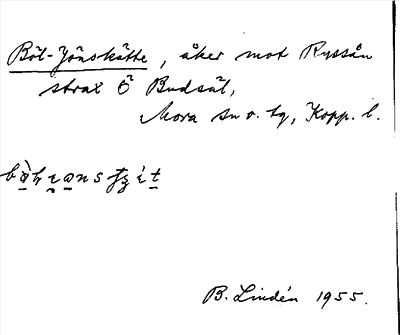 Böl-Jönskätte, åker mot Ryssån
strax Ö Budsäl,
Mora sn o. tg, Kopp. l.
B. Lindén 1955.